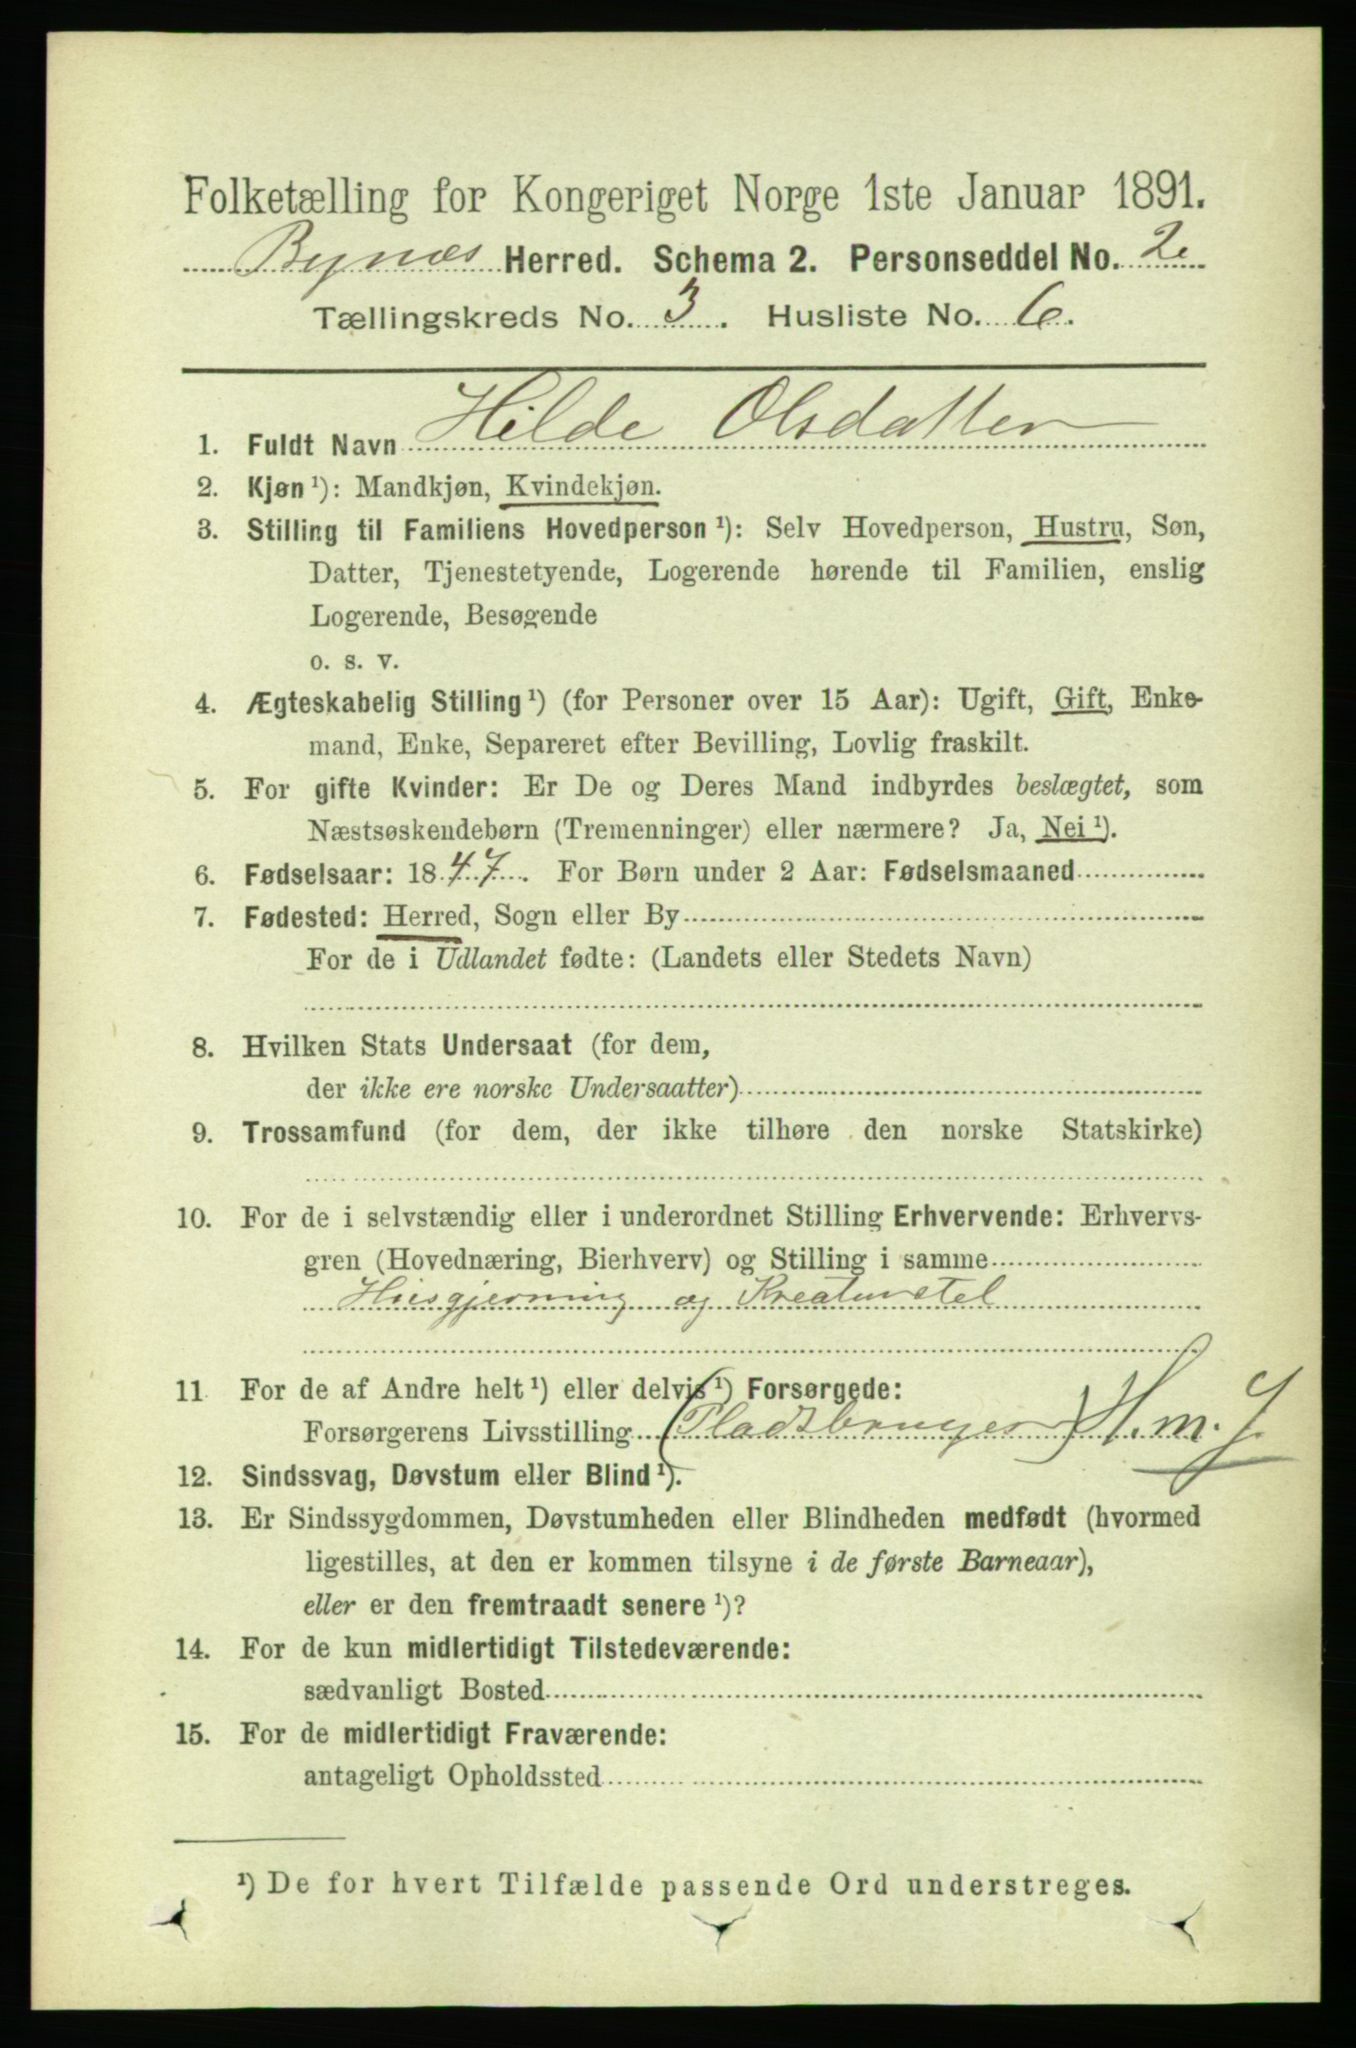 Folketælling for Kongeriget Norge 1ste Januar 1891.
Bynæs Herred. Schema 2. Personseddel No. 2.
Tællingskreds No. 3. Husliste No. 6.
1. Fuldt Navn Hilde Olsdatter
2. Kjøn ¹): Mandkjøn, Kvindekjøn.
3. Stilling til Familiens Hovedperson ¹): Selv Hovedperson, Hustru, Søn,
Datter, Tjenestetyende, Logerende hørende til Familien, enslig
Logerende, Besøgende
o. s. v.
4. Ægteskabelig Stilling ¹) (for Personer over 15 Aar): Ugift, Gift, Enke-
mand, Enke, Separeret efter Bevilling, Lovlig fraskilt.
5. For gifte Kvinder: Er De og Deres Mand indbyrdes beslægtet, som
Næstsøskendebørn (Tremenninger) eller nærmere? Ja, Nei ¹).
6. Fødselsaar: 1847. For Børn under 2 Aar: Fødselsmaaned
7. Fødested: Herred, Sogn eller By
For de i Udlandet fødte: (Landets eller Stedets Navn)
8. Hvilken Stats Undersaat (for dem,
der ikke ere norske Undersaatter)
9. Trossamfund (for dem, der ikke tilhøre den norske Statskirke)
10. For de i selvstændig eller i underordnet Stilling Erhvervende: Erhvervs-
gren (Hovednæring, Bierhverv) og Stilling i samme
Husgjerning og Kreaturstel
11 For de af Andre helt ¹) eller delvis ¹) Forsørgede:
Forsørgerens Livsstilling (Pladsbruger) H. m. J.
12. Sindssvag, Døvstum eller Blind ¹).
13. Er Sindssygdommen, Døvstumheden eller Blindheden medfødt (hvormed
ligestilles, at den er kommen tilsyne i de første Barneaar),
eller er den fremtraadt senere ¹)?
14. For de kun midlertidigt Tilstedeværende:
sædvanligt Bosted
15. For de midlertidigt Fraværende:
antageligt Opholdssted
¹) De for hvert Tilfælde passende Ord understreges.